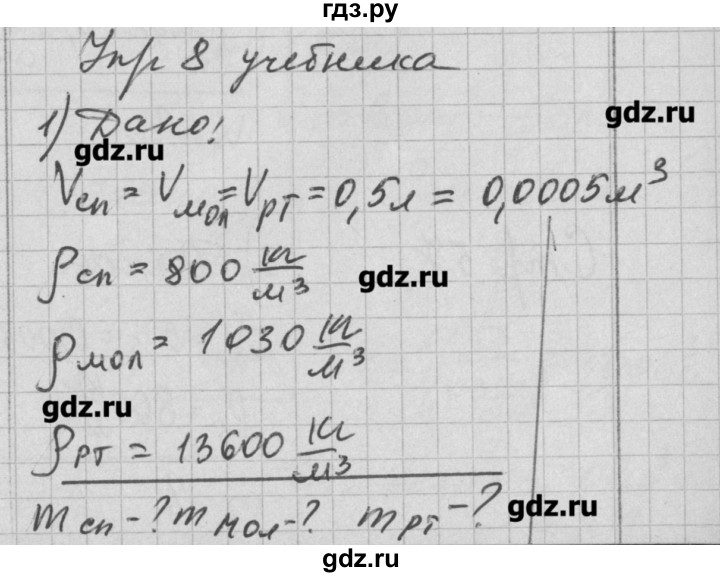 гдз.ру
Упр 8 учебника
gdz.ru
1) Дано:
gdz.ru
Vсп = Vмол = Vрт = 0,5л = 0,0005м³
ρсп = 800 кг/м³
gdz.ru
ρмол = 1030 кг/м³
gdz.ru
ρрт = 13600 кг/м³
mсп - ? mмол - ? mрт - ?
gdz.ru
gdz.ru